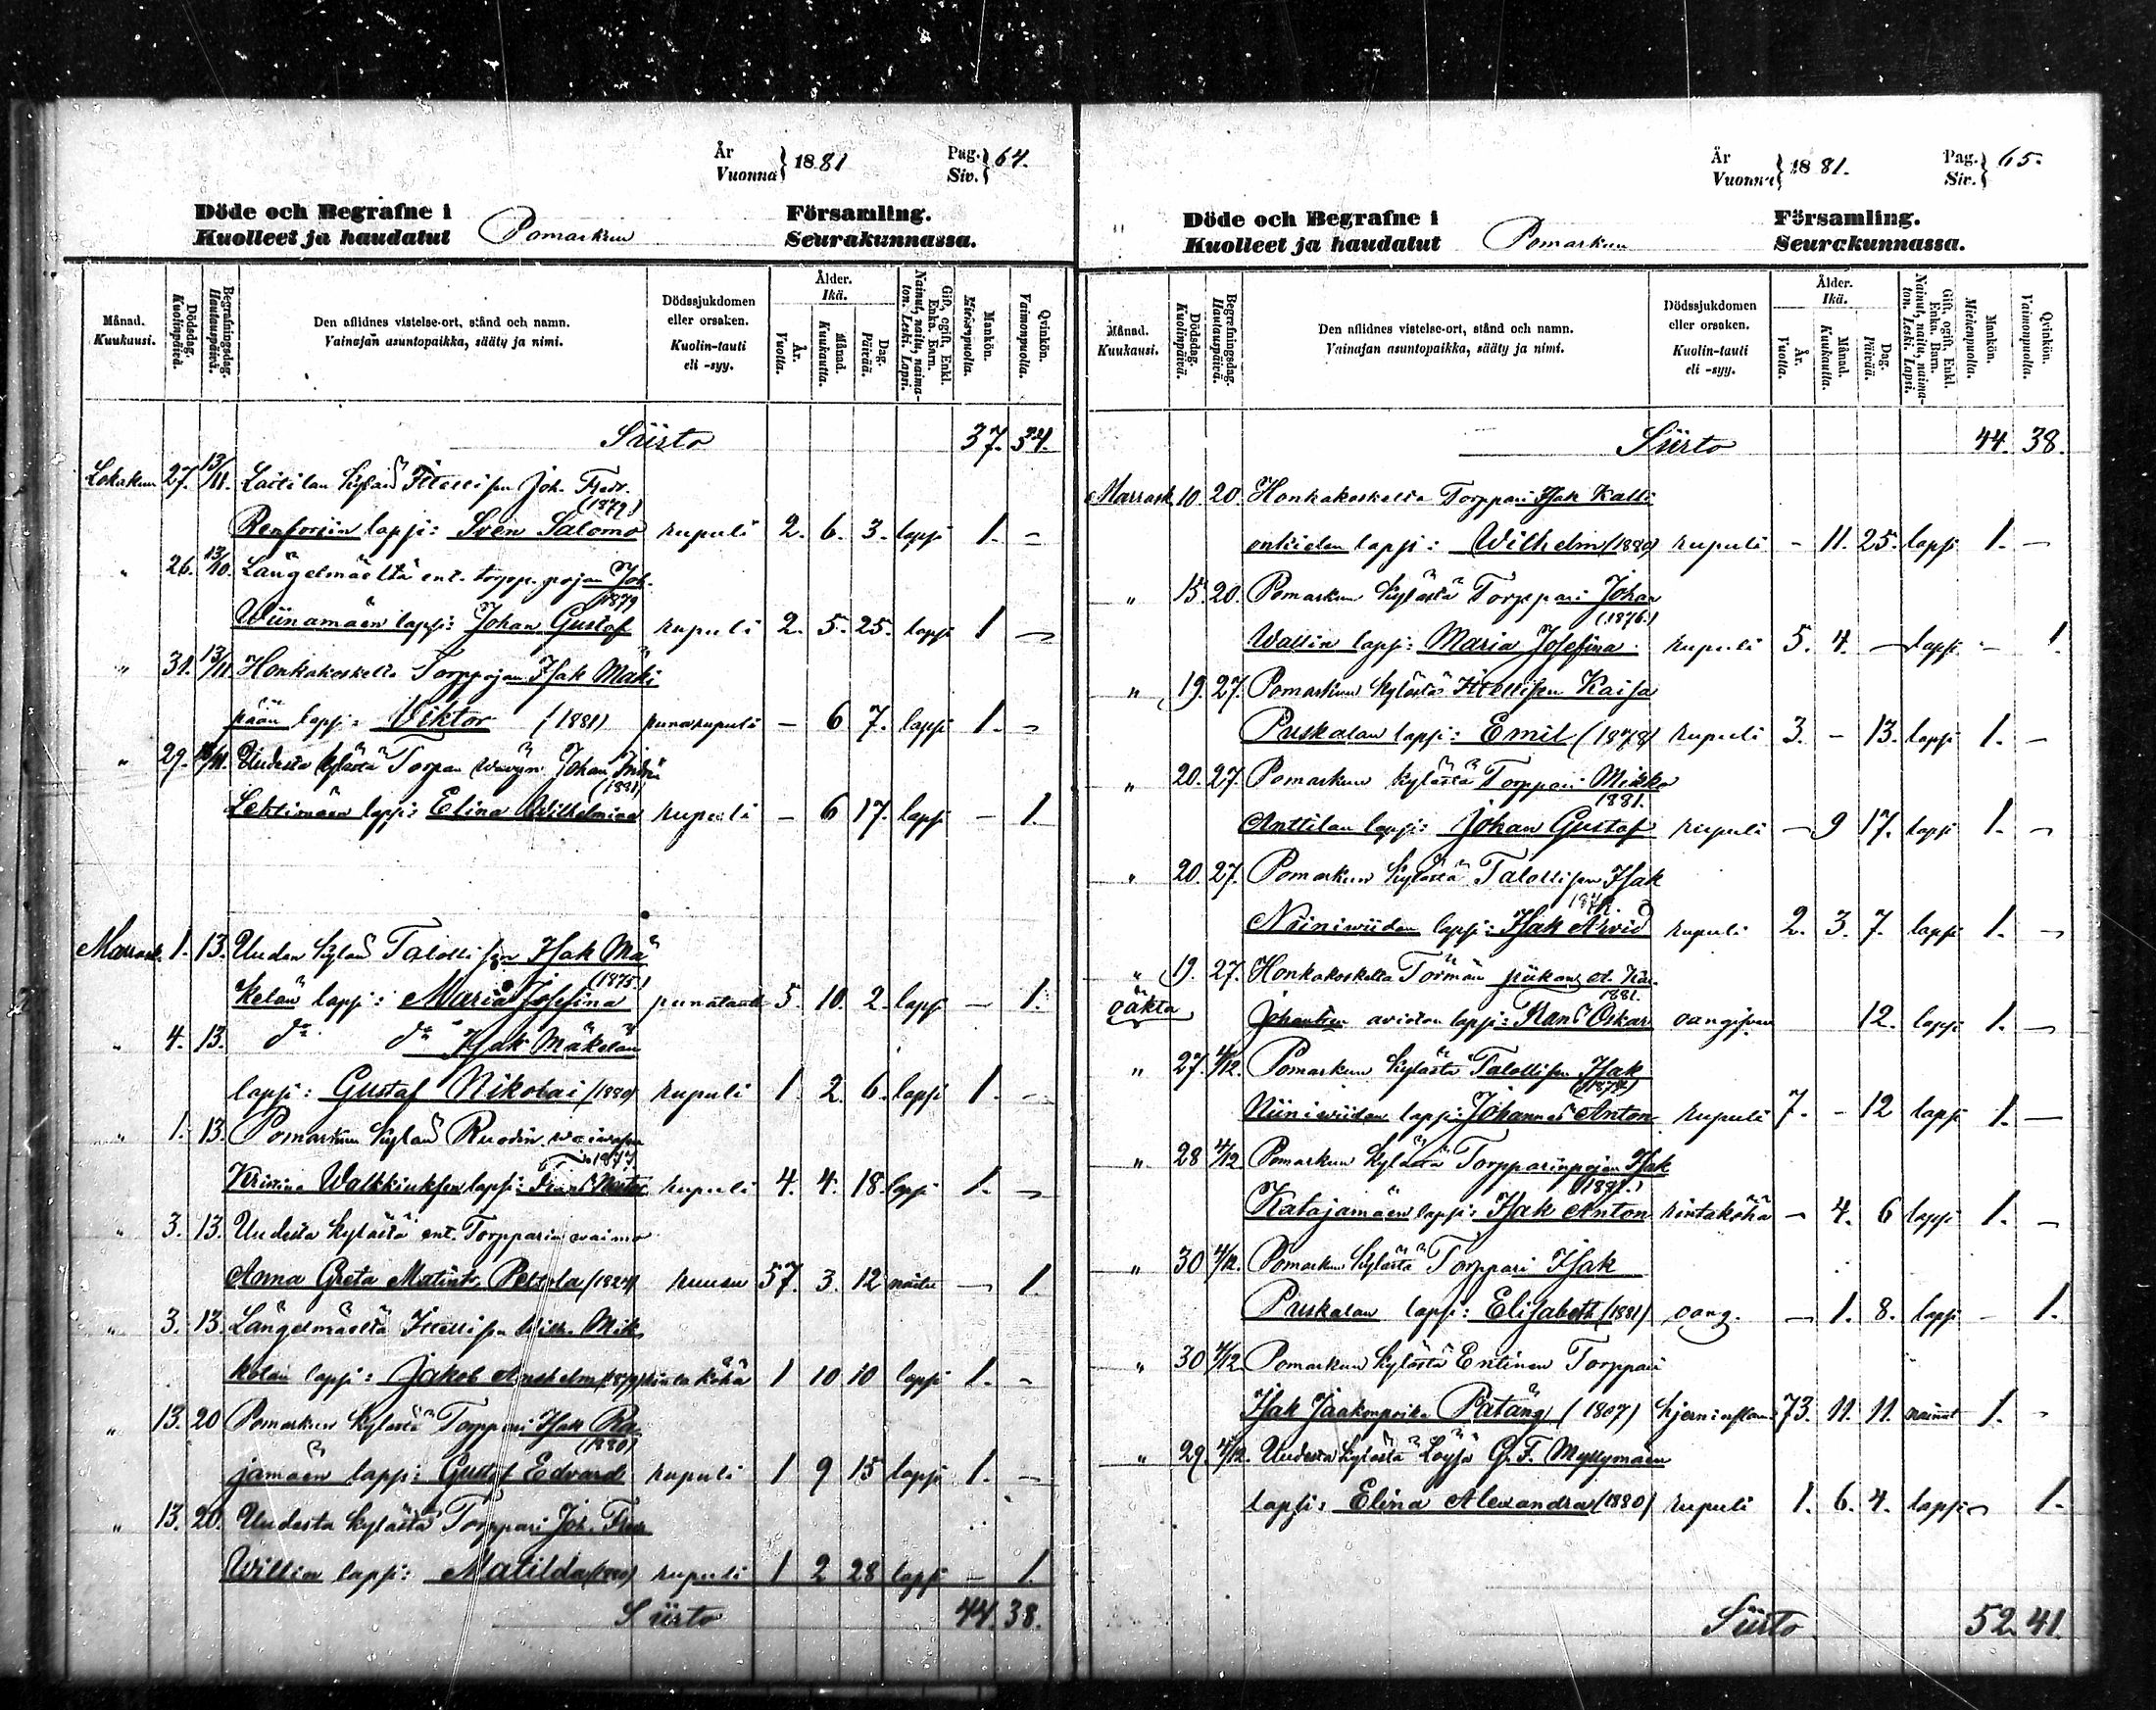 År
Vuonna } 1881
Pag.
Siv. } 64.
Döde och Begrafne i
Kuolleet ja haudatut
Pomarkun
Församling.
Seurakunnassa.
Månad.
Kuukausi.
Dödsdag.
Kuolinpäivä.
Begrafningsdag.
Hautauspäivä.
Den aflidnes vistelse-ort, stånd och namn.
Vainajan asuntopaikka, sääty ja nimi.
Dödssjukdomen
eller orsaken.
Kuolin-tauti
eli -syy.
Ålder.
Ikä.
År.
Vuotta.
Månad.
Kuukautta.
Dag.
Päivää.
Gift, ogift, Enkl.
Enka. Barn.
Nainut, naitu, naima-
ton. Leski. Lapsi.
Mankön.
Miehenpuolta.
Qvinkön.
Vaimonpuolta.
Siirto 37. 34.
Lokakuun 27. 13/11. Laitilan kylän Itsellisen Joh. Fredr.
(1879)
Renforsin lapsi: Sven Salomo rupuli 2. 6. 3. lapsi 1. -
" 26. 13/10. Längelmäeltä ent. torpp. pojan Joh.
1879
Wiinamäen lapsi: Johan Gustaf rupuli 2. 5. 25. lapsi 1 -
" 31. 13/11. Honkakoskelta Torppojan Isak Mäki
pään lapsi: Viktor (1881) punarupuli - 6 7. lapsi 1. -
" 29. Uudesta kylästä Torpan wävyn Johan
(1881)
Lehtimäen lapsi: Elina Wilhelmina rupuli - 6 17. lapsi - 1.
Marrask. 1. 13. Uuden kylän Talollisen Isak Mä
(1875)
kelän lapsi: Maria Josefina punataudi 5. 10. 2. lapsi - 1.
" 4. 13. do do Isak Mäkelän
lapsi: Gustaf Nikolai (1880) rupuli 1. 2. 6. lapsi 1. -
" 1. 13. Pomarkun kylän Ruodin waiwasen
1877
lapsi: rupuli 4. 4. 18. lapsi 1. -
" 3. 13. Uudesta kylästä ent. Torpparin waimo
Anna Greta Matint. Peltola (1824) kuusu 57. 3. 12 naitu - 1.
" 3. 13. Längelmäeltä Itsellisen Wilh. Mik
kolan lapsi: Jakob Anshelm (1879) rintaköhä 1 10 10 lapsi 1. -
" 13. 20 Pomarkun kylästä Torppari Isak Ra
(1880)
jamäen lapsi: Gustaf Edvard rupuli 1 9 15 lapsi 1. -
" 13. 20. Uudesta kylästä Torppari Joh. Fredr
Willin lapsi: Matilda (1880) rupuli 1 2 28 lapsi - 1.
Siirto 44. 38.
År
Vuonna } 1881.
Pag.
Siv. } 65.
Döde och Begrafne i
Kuolleet ja haudatut
Pomarkun
Församling.
Seurakunnassa.
Månad.
Kuukausi.
Dödsdag.
Kuolinpäivä.
Begrafningsdag.
Hautauspäivä.
Den aflidnes vistelse-ort, stånd och namn.
Vainajan asuntopaikka, sääty ja nimi.
Dödssjukdomen
eller orsaken.
Kuolin-tauti
eli -syy.
Ålder.
Ikä.
År.
Vuotta.
Månad.
Kuukautta.
Dag.
Päivää.
Gift, ogift, Enkl.
Enka. Barn.
Nainut, naitu, naima-
ton. Leski. Lapsi.
Mankön.
Miehenpuolta.
Qvinkön.
Vaimonpuolta.
Siirto 44. 38.
Marrask 10. 20. Honkakoskelta Torppari Isak Kalli
onkielen lapsi: Wilhelm (1880) rupuli - 11. 25. lapsi 1. -
" 15. 20. Pomarkun kylästä Torppari Johan
(1876.)
Wallin lapsi: Maria Josefina. rupuli 5. 4. - lapsi - 1.
" 19. 27. Pomarkun kylästä Itsellisen Kaisa
Puskalan lapsi: Emil (1878) rupuli 3. - 13. lapsi 1. -
" 20. 27. Pomarkun kylästä Torppari Mikko
1881.
Anttilan lapsi: Johan Gustaf rupuli - 9 17. lapsi 1. -
" 20. 27. Pomarkun kylästä Talollisen Isak
1879.
Niiniwiidan lapsi: Isak Arvid rupuli 2. 3. 7. lapsi 1. -
" 19. 27. Honkakoskelta Törmän piikan
1881.
oäkta aviotan lapsi: Frans Oskar oangifven 12. lapsi 1. -
" 27. 4/12. Pomarkun kylästä Talollisen Isak
(1874)
Niiniwiidan lapsi: Johannes Anton rupuli 7. - 12 lapsi 1. -
" 28 4/12 Pomarkun kylästä Torpparinpojan Isak
1881.
Katajamäen lapsi: Isak Anton rintaköhä - 4. 6 lapsi 1. -
" 30 4/12. Pomarkun kylästä Torppari Isak
Puskalan lapsi: Elisabeth (1881) oang. - 1. 8. lapsi - 1.
" 30 4/12 Pomarkun kylästä Entinen Torppari
Isak Jaakonpoika Patäng (1807) hjerninflam. 73. 11. 11. nainut 1. -
" 29. 4/12. Uudesta kylästä Loysä G. F. Myllymäen
lapsi: Elina Alexandra (1880) rupuli 1. 6. 4. lapsi - 1.
Siirto 52. 41.